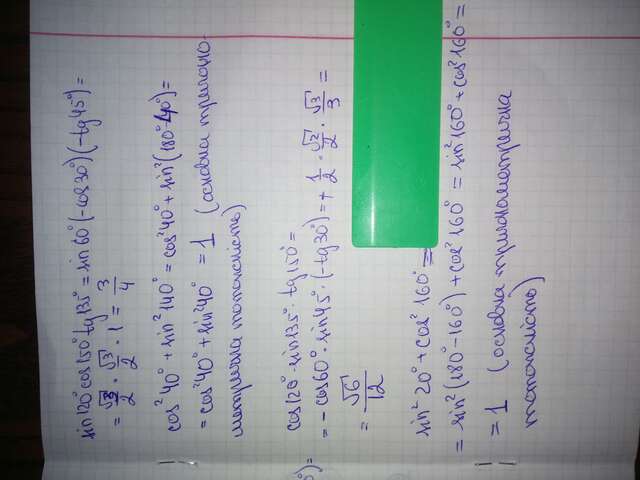 sin120°cos150°tg135° = sin60°(-cos30°)(-tg45°) =
= √3/2 · √3/2 · 1 = 3/4
cos²40° + sin²140° = cos²40° + sin²(180°-40°) =
= cos²40° + sin²40° = 1 (основна тригоно-
метрична тотожність)
cos120° · sin135° · tg150° =
= -cos60° · sin45° · (-tg30°) = + 1/2 · √2/2 · √3/3 =
= √6/12
sin²20° + cos²160° =
= sin²(180°-160°) + cos²160° = sin²160° + cos²160° =
= 1 (основна тригонометрична
тотожність)